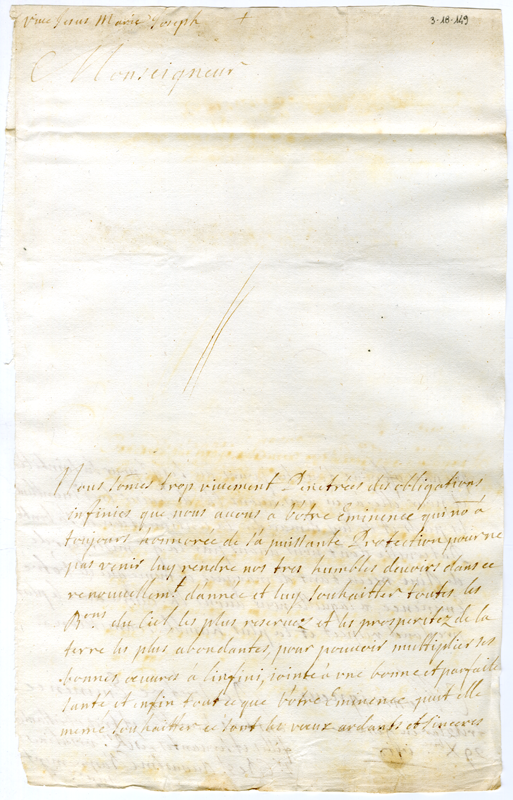 Vive Jesus Marie Joseph +
3-18-149
Monseigneur
Nous somes trop vivement Penetrées des obligations
infinies que nous avons à Votre Eminence qui no a
toujours honnorée de sa puissante Protection pour ne
pas venir luy rendre nos tres humbles devoirs dans ce
renouvellemt dannée et luy souhaitter toutes les
du Ciel les plus reservez et les prosperitez de la
terre les plus abondantes, pour pouvoir multiplier ses
bonnes œuvres a linfini, jointe à une bonne et parfaitte
santé et enfin tout ce que Votre Eminence peut elle
meme souhaitter ce sont les vœux ardants et sinceres